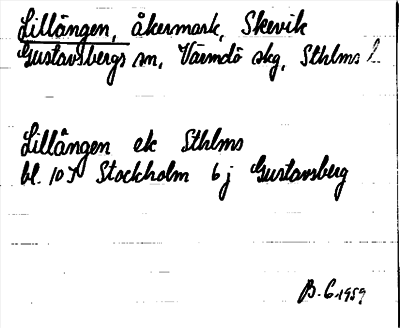 Lillängen, åkermark, Skevik
Gustavsbergs sn, Värmdö skg, Sthlms l.
Lillängen ek Sthlms
bl. 107 Stockholm 6 j Gustavsberg
B. G. 1959